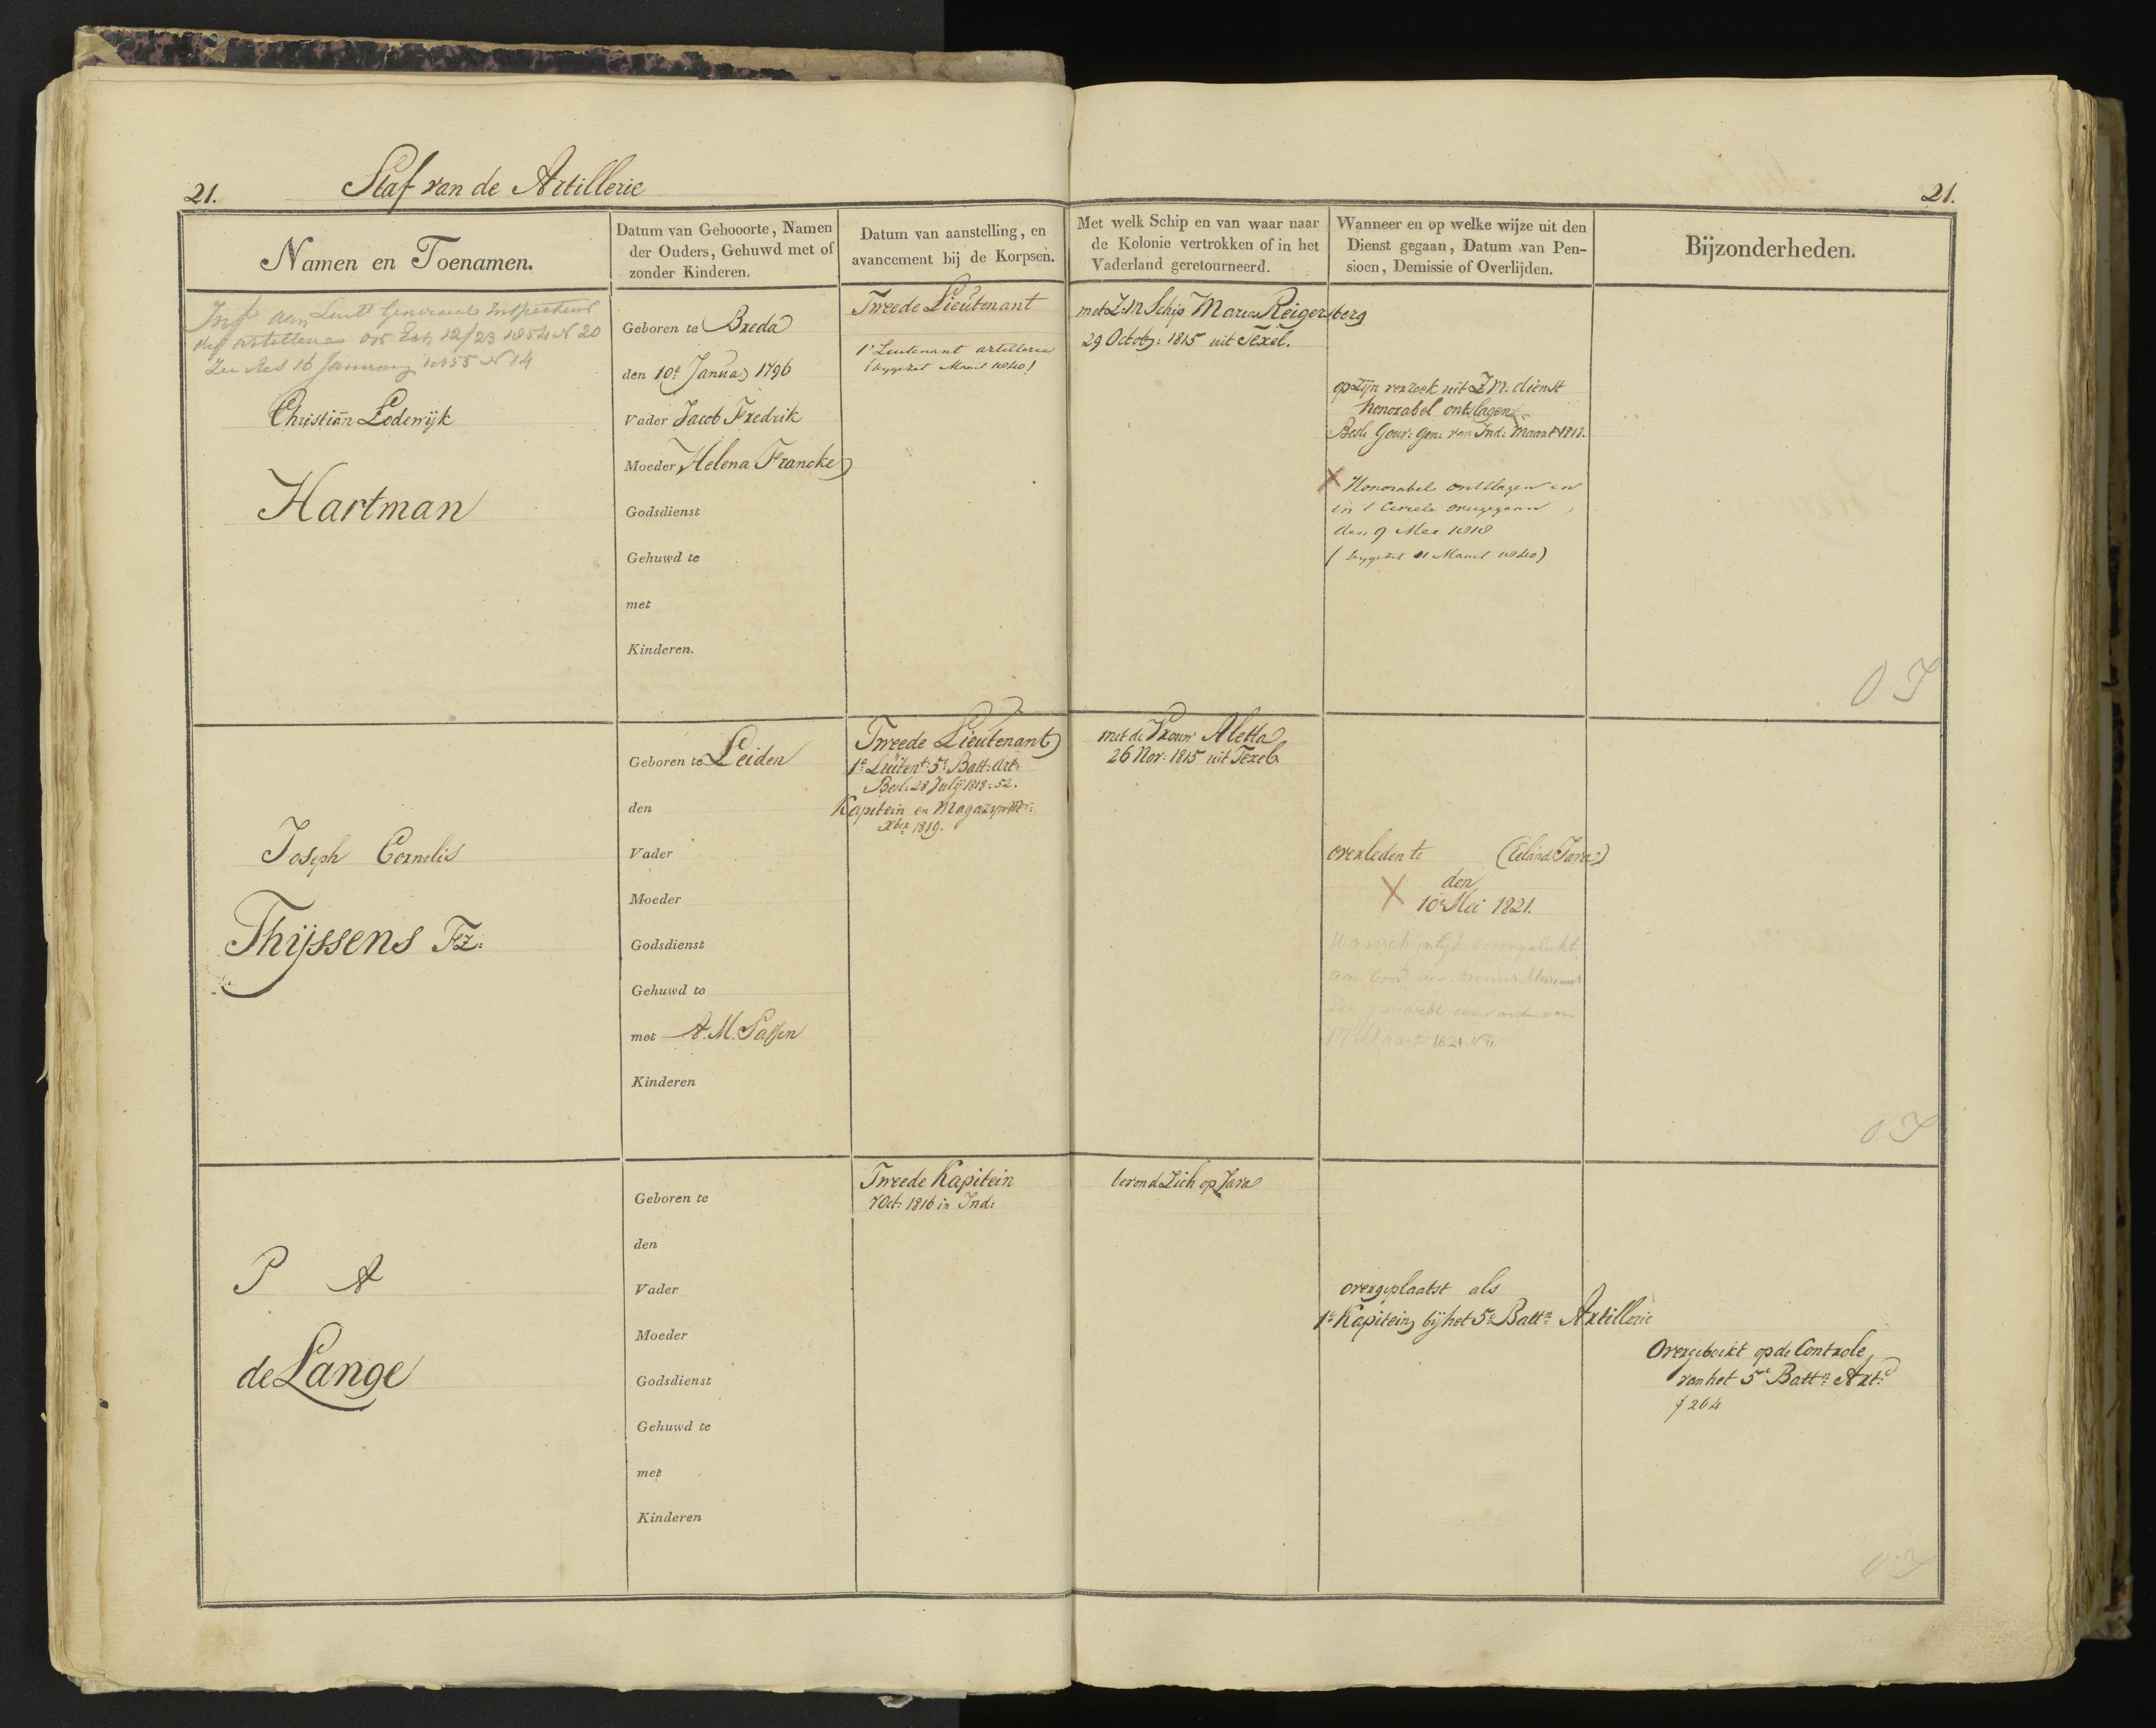 21.
Staf van de Artillerie
21.
Namen en Toenamen.
Datum van Gebooorte, Namen
der Ouders, Gehuwd met of
zonder Kinderen.
Datum van aanstelling, en
avancement bij de Korpsen.
Met welk Schip en van waar naar
de Kolonie vertrokken of in het
Vaderland geretourneerd.
Wanneer en op welke wijze uit den
Dienst gegaan, Datum van Pen-
sioen, Demissie of Overlijden.
Bijzonderheden.
aan Luitt Generaal Inspecteur
der artillerie 12/23 1854 N 20
Zie Res 16 January 1855 N 14
Christiän Lodewijk
Hartman
Geboren te Breda
den 10e Januaÿ 1796
Vader Jacob Fredrik
Moeder Helena Francke
Godsdienst
Gehuwd te
met
Kinderen.
Tweede Lieutenant
1e Luitenant artillerie
(bygezet Maart 1840)
met Z:M Schip Maria Reigersberg
29 Octob: 1815 uit Texel.
op Zijn verzoek uit Z M: dienst
honorabel ontslagen
Besl: Gouv: Gen: van Ind: Maart 1818.
X Honorabel ontslagen en
in 's Civiele overgegaan
den 9 Mei 1818
(bygezet 11 Maart 1840)
O I
Joseph Cornelis
Thijssens Fz:
Geboren te Leiden
den
Vader
Moeder
Godsdienst
Gehuwd te
met A. M. Sassen
Kinderen
Tweede Lieutenant
1e Luitent: 5e Batt: Art:
Besl: 28 Julij 1818: 52.
Kapitein en Magazijnmr:
Xber 1819.
met de Vrouw Aletta
26 Nov: 1815 uit Texel
overleden te (Eiland Java)
den
X 10e Mei 1821.
Waarschynlyk verongelukt
aan boord der
Zie Javasche courant van
17 Maart 1821 N
O I
P A
de Lange
Geboren te
den
Vader
Moeder
Godsdienst
Gehuwd te
met
Kinderen
Tweede Kapitein
7 Oct: 1816 in Ind:
bevond Zich op Java
overgeplaatst als
1e Kapitein bij het 5e Battn: Artillerie
Overgeboekt op de Controle
van het 5e Battn: Art:
f 264
O I